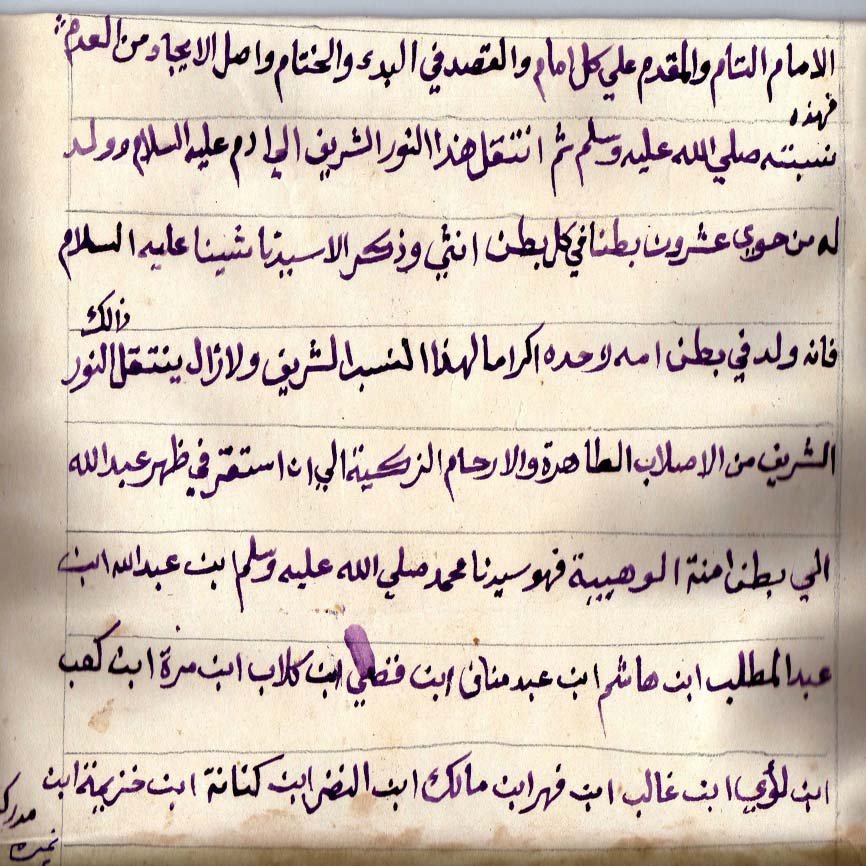 الامام التام والمقدم علي كل امام والقصد في البدء والختام واصل الايجاد من العدم
فهذه
نسبته صلي الله عليه وسلم ثم انتقل هذا النور الشريف الي ادم عليه السلام وولد
له من حوي عشرون بطنا في كل بطن انثي وذكر الا سيدنا شيثا عليه السلام
ذالك
فانه ولد في بطن امه لاحده اكراما لهذا النسب الشريف ولازال ينتقل النور
الشريف من الاصلاب الطاهرة والارحام الزكية الي ان استقر في ظهر عبد الله
الي بطن امنة الوهيبية فهو سيدنا محمد صلي الله عليه وسلم ابن عبد الله ابن
عبد المطلب ابن هاشم ابن عبد مناف ابن قصي ابن كلاب ابن مرة ابن كعب
ابن لؤي ابن غالب ابن فهر ابن مالك ابن النضر ابن كنانة ابن خزيمة ابن